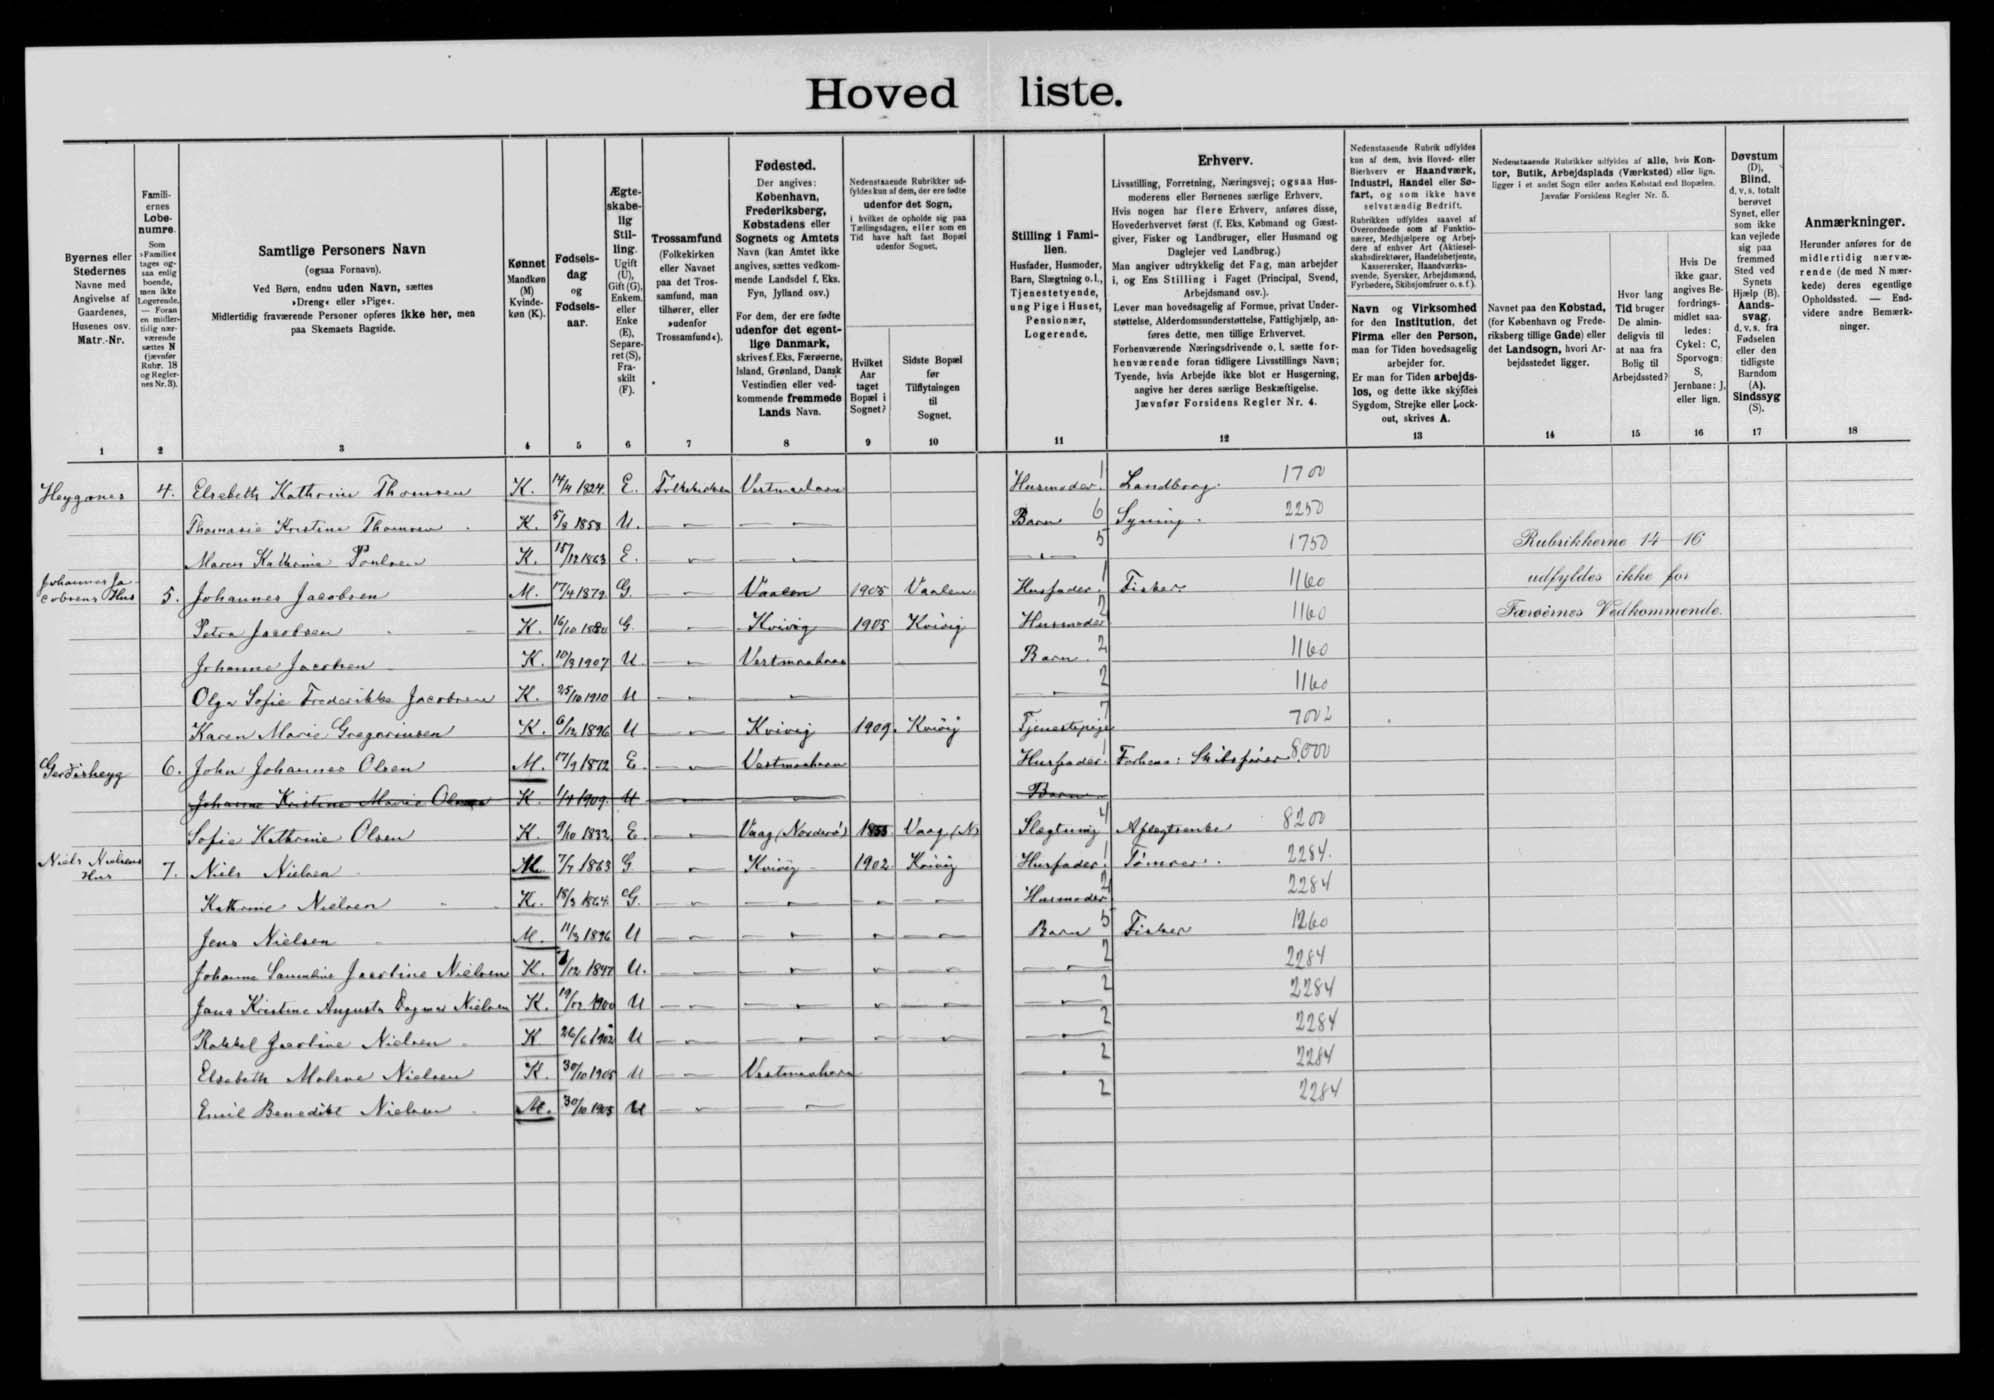 Hovedliste.
Byernes eller Stedernes Navne med Angivelse af Gaardenes, Husenes osv. Matr.-Nr.
Familiernes Løbenumre. Som »Familie« tages ogsaa enlig boende, men ikke Logerende. — Foran en midlertidig nærværende sættes N (jævnfør Rubr. 18 og Reglernes Nr. 3).
Samtlige Personers Navn (ogsaa Fornavn). Ved Børn, endnu uden Navn, sættes »Dreng« eller »Pige«. Midlertidig fraværende Personer opføres ikke her, men paa Skemaets Bagside.
Kønnet Mandkøn (M) Kvindekøn (K).
Fødselsdag og Fødselsaar.
Ægteskabelig Stilling. Ugift (U), Gift (G), Enkem. eller Enke (E), Separeret (S), Fraskilt (F).
Trossamfund (Folkekirken eller Navnet paa det Trossamfund, man tilhører, eller »udenfor Trossamfund«).
Fødested. Der angives: København, Frederiksberg, Købstadens eller Sognets og Amtets Navn (kan Amtet ikke angives, sættes vedkommende Landsdel f. Eks. Fyn, Jylland osv.) For dem, der ere fødte udenfor det egentlige Danmark, skrives f. Eks. Færøerne, Island, Grønland, Dansk Vestindien eller vedkommende fremmede Lands Navn.
Nedenstaaende Rubrikker udfyldes kun af dem, der ere fødte udenfor det Sogn, i hvilket de opholde sig paa Tællingsdagen, eller som en Tid have haft fast Bopæl udenfor Sognet.
Hvilket Aar taget Bopæl i Sognet?
Sidste Bopæl før Tilflytningen til Sognet.
Stilling i Familien. Husfader, Husmoder, Barn, Slægtning o. l., Tjenestetyende, ung Pige i Huset, Pensionær, Logerende.
Erhverv.
Livsstilling, Forretning, Næringsvej; ogsaa Husmoderens eller Børnenes særlige Erhverv.
Hvis nogen har flere Erhverv, anføres disse, Hovederhvervet først (f. Eks. Købmand og Gæstgiver, Fisker og Landbruger, eller Husmand og Daglejer ved Landbrug.)
Man angiver udtrykkelig det Fag, man arbejder i, og Ens Stilling i Faget (Principal, Svend, Arbejdsmand osv.).
Lever man hovedsagelig af Formue, privat Understøttelse, Alderdomsunderstøttelse, Fattighjælp, anføres dette, men tillige Erhvervet.
Forhenværende Næringsdrivende o. l. sætte forhenværende foran tidligere Livsstillings Navn; Tyende, hvis Arbejde ikke blot er Husgerning, angive her deres særlige Beskæftigelse.
Jævnfør Forsidens Regler Nr. 4.
Nedenstaaende Rubrik udfyldes kun af dem, hvis Hoved- eller Bierhverv er Haandværk, Industri, Handel eller Søfart, og som ikke have selvstændig Bedrift.
Rubrikken udfyldes saavel af Overordnede som af Funktionærer, Medhjælpere og Arbejdere af enhver Art (Aktieselskabsdirektører, Handelsbetjente, Kasserersker, Haandværkssvende, Syersker, Arbejdsmænd, Fyrbødere, Skibsjomfruer o. s. f.).
Navn og Virksomhed for den Institution, det Firma eller den Person, man for Tiden hovedsagelig arbejder for.
Er man for Tiden arbejdsløs, og dette ikke skyldes Sygdom, Strejke eller Lockout, skrives A.
Nedenstaaende Rubrikker udfyldes af alle, hvis Kontor, Butik, Arbejdsplads (Værksted) eller lign. ligger i et andet Sogn eller anden Købstad end Bopælen. Jævnfør Forsidens Regler Nr. 5.
Navnet paa den Købstad, (for København og Frederiksberg tillige Gade) eller det Landsogn, hvori Arbejdsstedet ligger.
Hvor lang Tid bruger De almindeligvis til at naa fra Bolig til Arbejdssted?
Hvis De ikke gaar, angives Befordringsmidlet saaledes: Cykel: C, Sporvogn: S, Jernbane: J, eller lign.
Døvstum (D), Blind, d. v. s. totalt berøvet Synet, eller som ikke kan vejlede sig paa fremmed Sted ved Synets Hjælp (B). Aandssvag, d. v. s. fra Fødselen eller den tidligste Barndom (A). Sindssyg (S).
Anmærkninger. Herunder anføres for de midlertidig nærværende (de med N mærkede) deres egentlige Opholdssted. — Endvidere andre Bemærkninger.
1 2 3 4 5 6 7 8 9 10 11 12 13 14 15 16 17 18
Heyganes 4. Elsebeth Kathrine Thomsen K. 14/4 1824. E. Folkekirken Vestmanhavn Husmoder. 1 Landbrug. 1700
Thomasia Kristine Thomsen K. 5/9 1858 U. Barn 6 Syning. 2250
Maren Kathrine Poulsen K. 15/12 1863 E. 5 1750 Rubrikkerne 14—16
Johannes Jacobsens Hus 5. Johannes Jacobsen M. 17/4 1879 G. Vaalen 1905 Vaalen Husfader. 1 Fisker. 1160 udfyldes ikke for
Petra Jacobsen K. 16/10 1880 G. Kvivig 1905 Kvivig Husmoder 2 1160 Færøernes Vedkommende.
Johanne Jacobsen K. 10/9 1907 U. Vestmanhavn Barn. 2 1160
Olga Sofie Frederikke Jacobsen K. 25/10 1910 U 2 1160
Karen Marie Gregoriusen K. 6/12 1896 U Kvivig 1909. Kvivig Tjenestepige 7 7002
Gerðisheyg 6. John Johannes Olsen M. 17/9 1872 E. Vestmanhavn Husfader. 1 Forhenv: Skibsfører 8000
Johanne Kristine Marie Olsen K. 1/4 1909. U Barn
Sofie Kathrine Olsen K. 9/10 1832 E. Vaag (Norderø) 1855 Vaag. (N) Slægtning 4 Aflægtsenke 8200
Niels Nielsens Hus 7. Niels Nielsen M. 7/7 1863 G. Kvivig 1902 Kvivig Husfader. 1 Tømrer. 2284.
Kathrine Nielsen K. 18/3 1864. G. Husmoder 2 2284
Jens Nielsen M. 11/3 1896 U Barn 5 Fisker 1260
Johanne Sammeline Jacobine Nielsen K. /12 1897 U. 2 2284
Jana Kristine Augusta Dagmar Nielsen K. 19/02 1900 U 2 2284
Rakkel Jacobine Nielsen K 26/6 1902 U 2 2284
Elsebeth Malene Nielsen K. 30/10 1905 U Vestmanhavn 2 2284
Emil Benedikt Nielsen M. 30/10 1905 U 2 2284